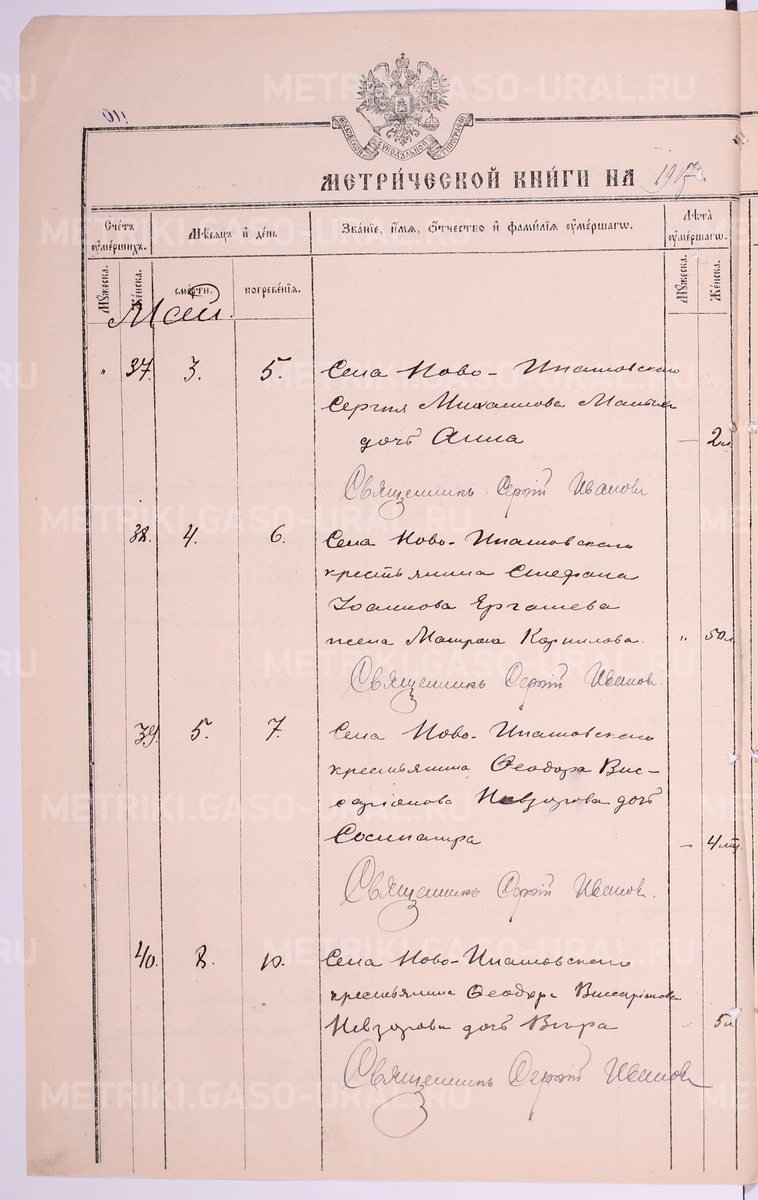 METRIKI.GASO-URAL.RU
МОСКОВСКОЙ СѴНОДАЛЬНОЙ ТИПОГРАФІИ
МЕТРИ́ЧЕСКОЙ КНИ́ГИ НА 1917
Сче́тъ оуме́ршихъ. Мѣ́сяцъ и де́нь Зва́нїе, и́мя, ѻ́тчество и фами́лїя оуме́ршагѡ. Лѣ́та оуме́ршагѡ.
Мꙋ́жеска. Же́нска. сме́рти. погребе́нїя. Мꙋ́жеска. Же́нска.
Май.
" 37. 3. 5. Села Ново-Ипатовскаго
Сергия Михаилова
дочь Анна — 2 л
Священникъ Сергій Ивановъ
38. 4. 6. Села Ново-Ипатовскаго
крестьянина Стефана
Іоаннова Ергашева
жена Матрона Корнилова. " 50 л
Священникъ Сергій Ивановъ.
39. 5. 7. Села Ново-Ипатовскаго
крестьянина Ѳеодора Вис-
саріонова Невзорова дочь
Сосипатра — 4
Священникъ Сергій Ивановъ.
40. 8. 10. Села Ново-Ипатовскаго
крестьянина Ѳеодора Виссаріонова
Невзорова дочь Вѣра - 5 л
Священникъ Сергій Ивановъ